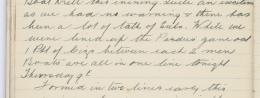 Boat Drill this evening quite an excitement
as we had no warning & there has
been a lot of talk of Subs. While we
were lined up the Purdues gave out
1 Pkt of Cigs between each 2 men
Boats are all in one line tonight
Thursday 9t
Formed in two lines early this